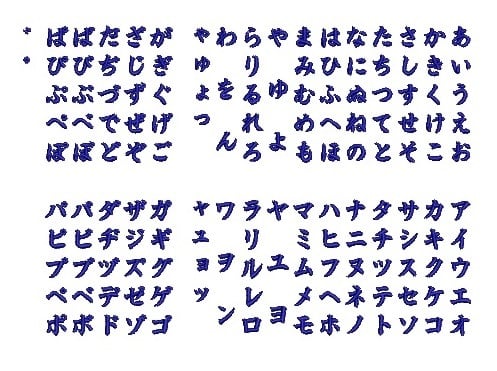 あいうえお
かきくけこ
さしすせそ
たちつてと
なにぬねの
はひふへほ
まみむめも
やゆよ
らりるれろ
わをん
ゃゅょっ
がぎぐげご
ざじずぜぞ
だぢづでど
ばびぶべぼ
ぱぴぷぺぽ
アイウエオ
カキクケコ
サシスセソ
タチツテト
ナニヌネノ
ハヒフヘホ
マミムメモ
ヤユヨ
ラリルレロ
ワヲン
ャュョッ
ガギグゲゴ
ザジズゼゾ
ダヂヅデド
バビブベボ
パピプペポ